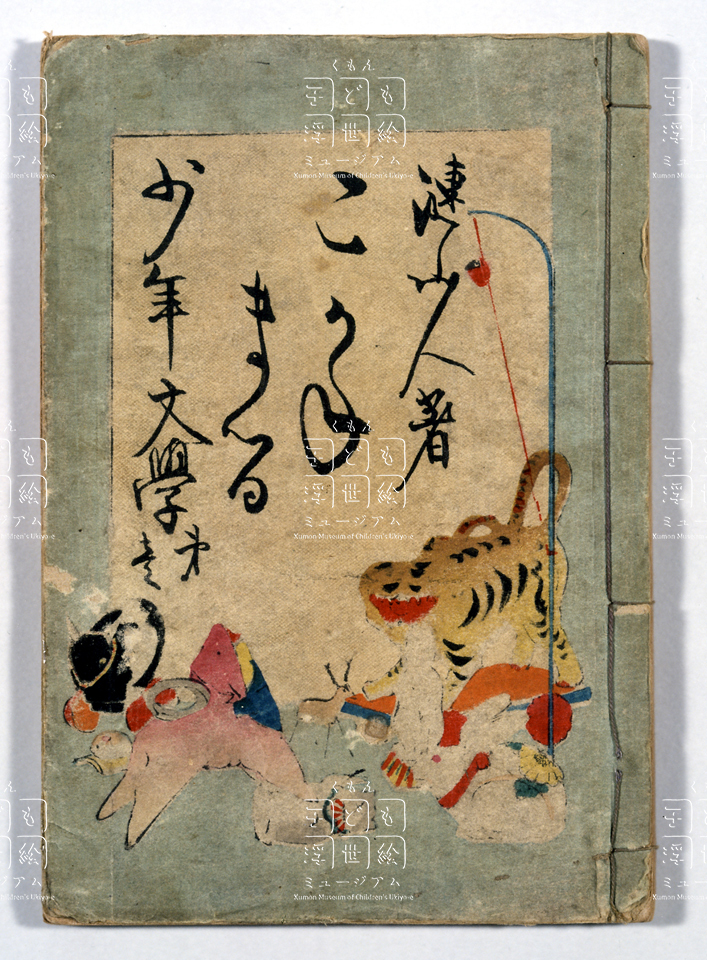 漣山人著
こがね
まる
少年文學
第壱
くもん
子ども
浮世絵
ミュージアム
Kumon Museum of Children's Ukiyo-e